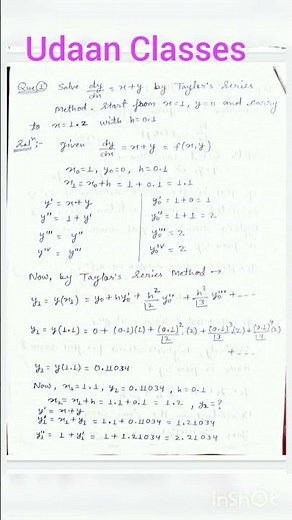 Udaan Classes
Que① Solve dy/dx = x+y by Taylor's Series
Method. Start from x=1, y=0 and carry
to x=1.2 with h=0.1
Solⁿ:- Given dy/dx = x+y = f(x,y)
x₀=1, y₀=0, h=0.1
x₁=x₀+h = 1+0.1 = 1.1
y' = x+y | y₀' = 1+0 = 1
y'' = 1+y' | y₀'' = 1+1 = 2
y''' = y'' | y₀''' = 2
y'ᵛ = y''' | y₀'ᵛ = 2
Now, by Taylor's Series Method →
y₁ = y(x₁) = y₀+hy₀'+ h²/|2 y₀'' + h³/|3 y₀''' + ---
y₁ = y(1.1) = 0+(0.1)(1)+(0.1)²/|2 .(2)+(0.1)³/|3 (2)+(0.1)⁴/|4 (2)
+---
y₁ = y(1.1) = 0.11034
Now, x₁=1.1, y₁=0.11034, h=0.1
x₂=x₁+h = 1.1+0.1 = 1.2, y₂=?
y' = x+y
y₁' = x₁+y₁ = 1.1+0.11034 = 1.21034
y₁'' = 1+y₁' = 1+1.21034 = 2.21034
InShOt